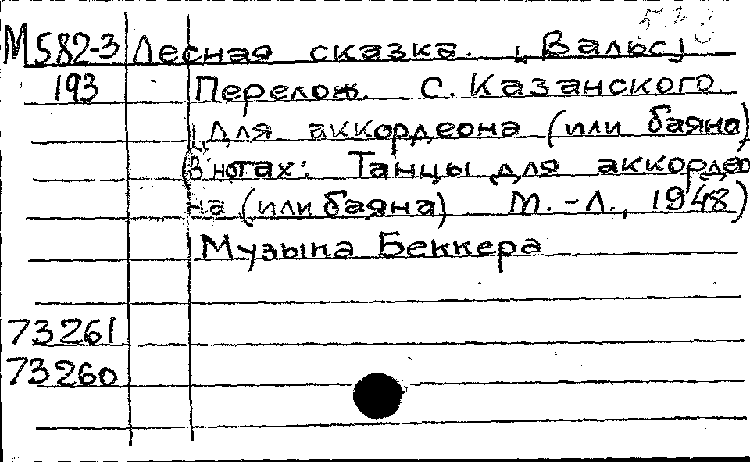 М582-3 Лесная сказка. [Вальс]
193 Перелож. С. Казанского
[Для аккордеона (или баяна)
(В нотах: Танцы для аккордео
на (или баяна) М.-Л., 1948)
Музыка Беккера
73261
73260